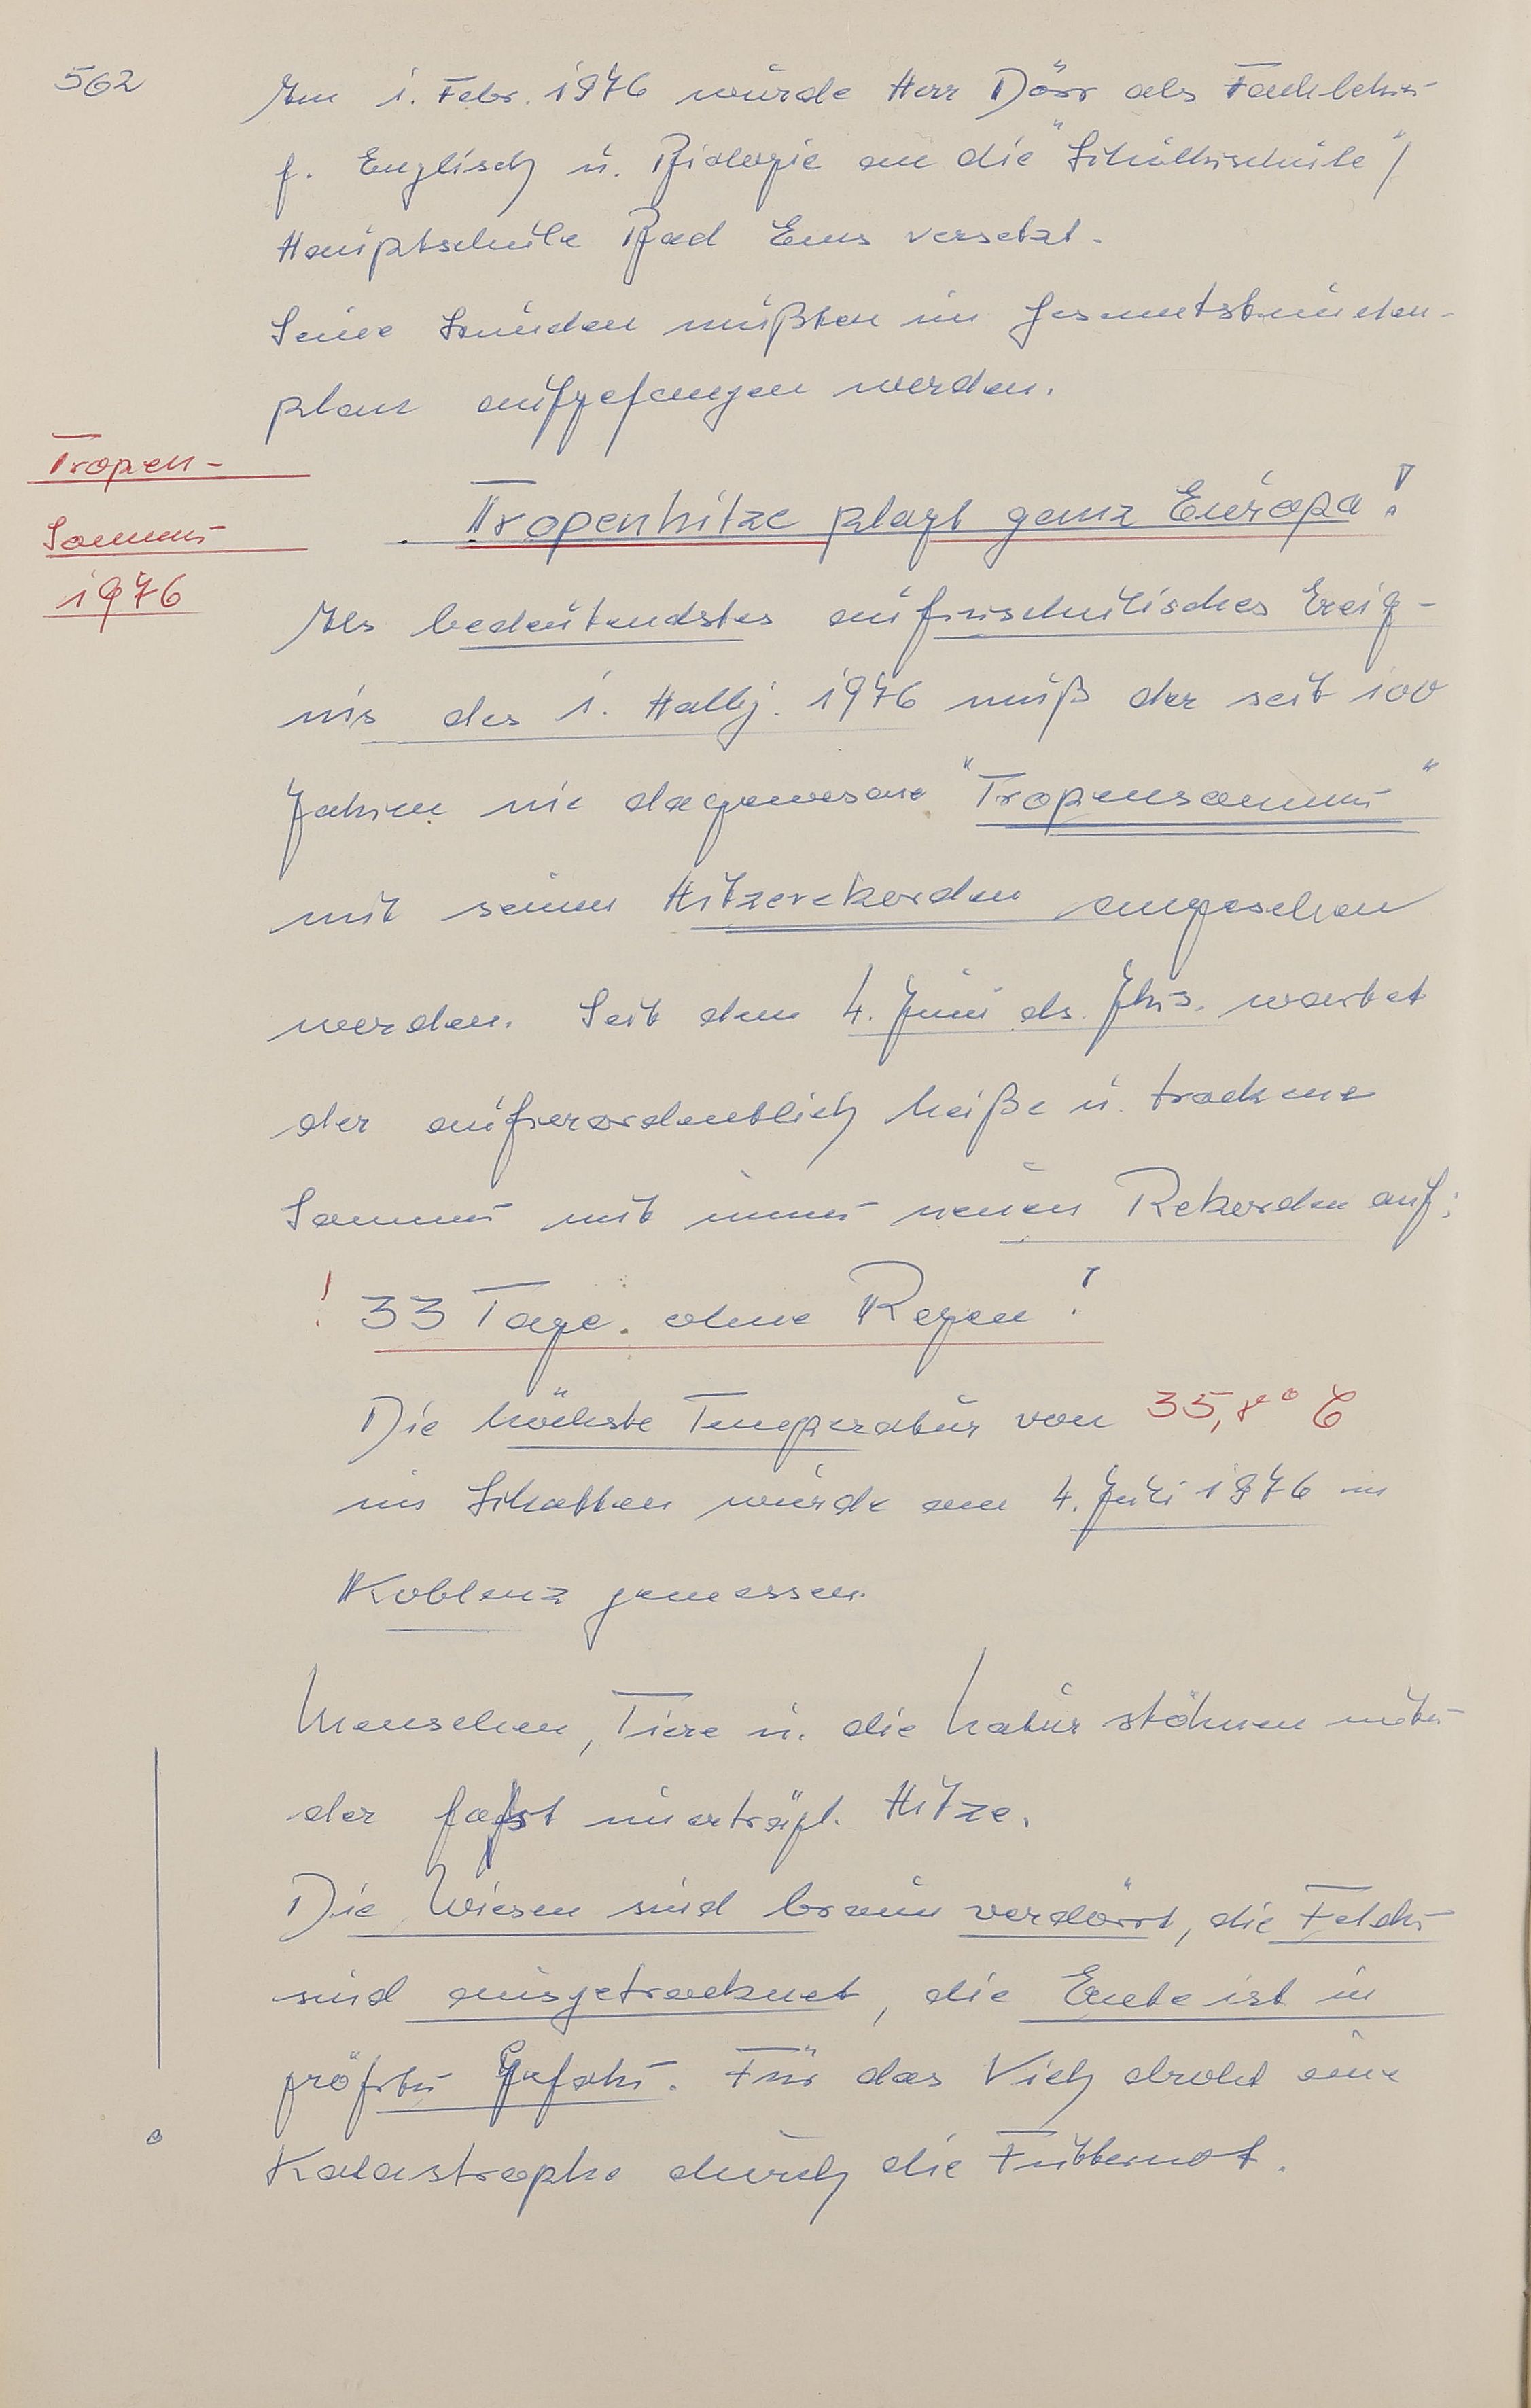 562
Am 1. Febr. 1976 wurde Herr Dörr als Fachlehrer
f. Englisch u. Biologie an die "Schillerschule"/
Hauptschule Bad Ems versetzt.
Seine Stunden mußten im Gesamtstunden-
plan aufgefangen werden.
Tropen-
Sommer
1976
Tropenhitze plagt ganz Europa!
Als bedeutendstes außerschulisches Ereig-
nis des 1. Halbj. 1976 muß der seit 100
Jahren nie dagewesene "Tropensommer"
mit seinen Hitzerekorden angesehen
werden. Seit dem 4. Juni ds. Jhrs. wartet
der außerordentlich heiße u. trockene
Sommer mit immer neuen Rekorden auf:
! 33 Tage ohne Regen!
Die höchste Temperatur von 35,8° C
im Schatten wurde am 4. Juli 1976 in
Koblenz gemessen.
Menschen, Tiere u. die Natur stöhnen unter
der fast unerträgl. Hitze.
Die Wiesen sind braun verdörrt, die Felder
sind ausgetrocknet, die Ernte ist in
größter Gefahr. Für das Vieh droht eine
Katastrophe durch die Futternot.